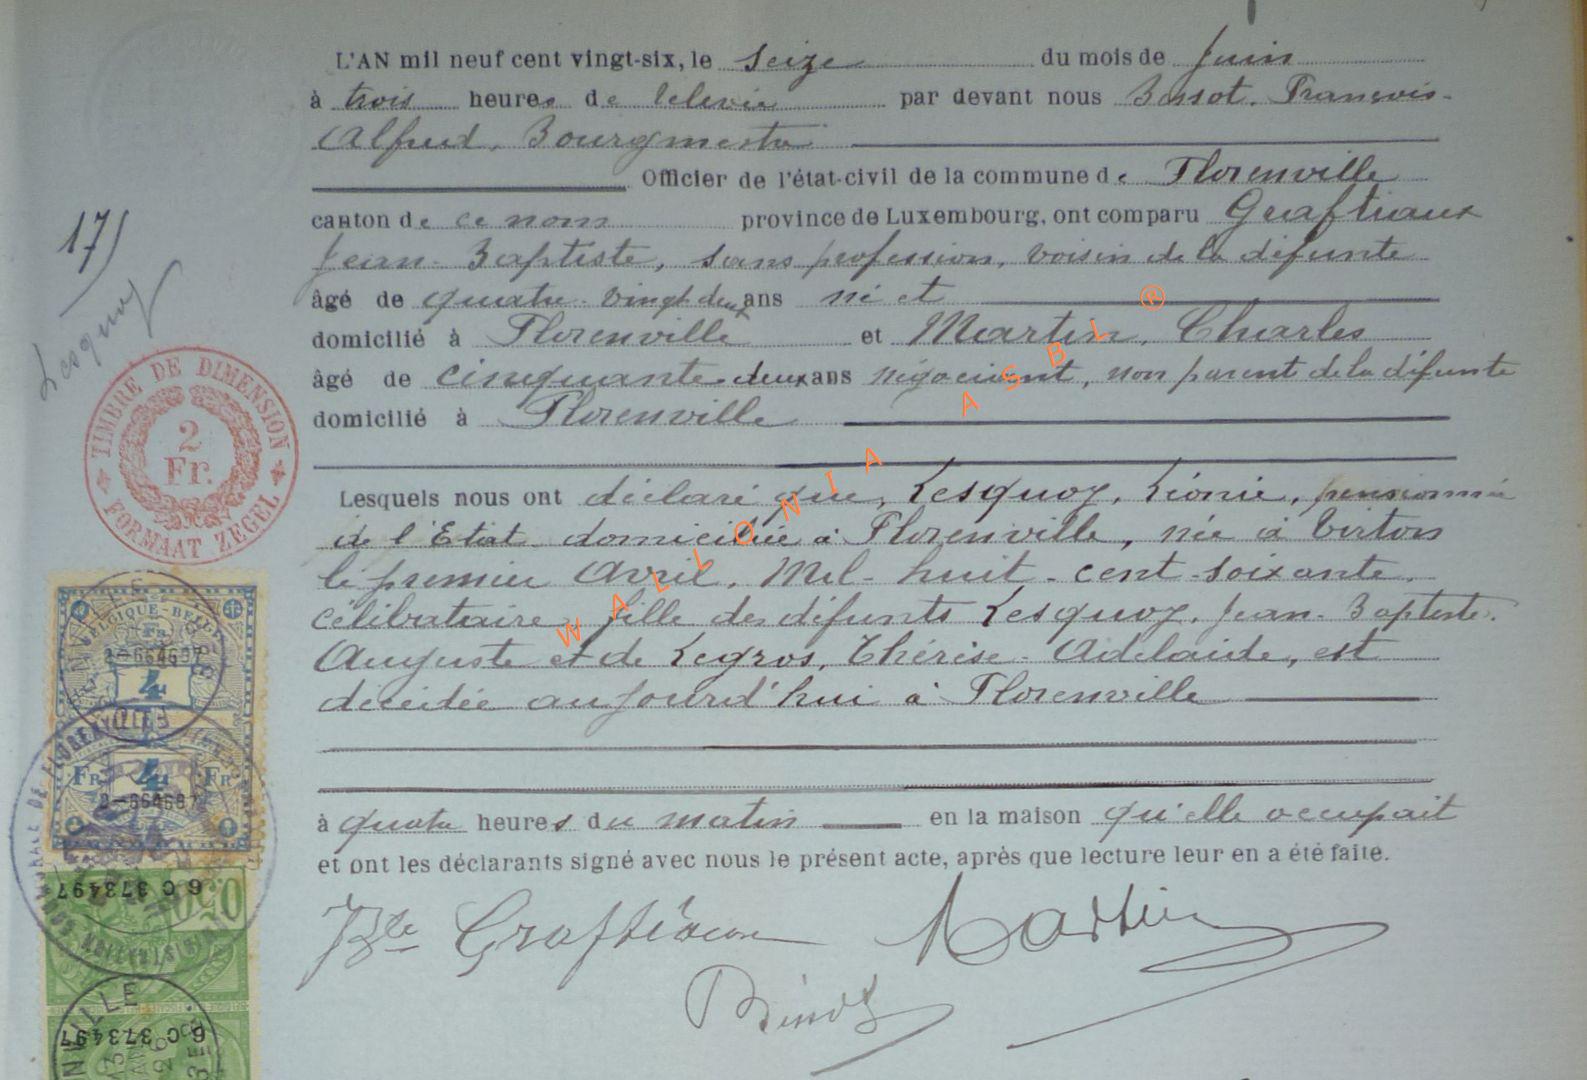 L'AN mil neuf cent vingt-six, le seize du mois de Juin
à trois heures de relevée par devant nous François-
Alfred, Bourgmestre
Officier de l'état-civil de la commune de Florenville
canton de ce nom province de Luxembourg, ont comparu Graftiaux
Jean-Baptiste, sans profession, voisin de la défunte
âgé de quatre-vingt-deux ans né et
domicilié à Florenville et Martin, Charles
âgé de cinquante-deux ans négociant, non parent de la défunte
domicilié à Florenville
Lesquels nous ont déclaré que, Lesquoy, Léonie, pensionnée
de l'Etat domiciliée à Florenville, née à Virton
le premier Avril, Mil-huit-cent-soixante,
célibataire, fille des défunts Lesquoy, Jean-Baptiste-
Auguste et de Legros, Thérèse-Adelaïde, est
décédée aujourd'hui à Florenville
à quatre heures du matin en la maison qu'elle occupait
et ont les déclarants signé avec nous le présent acte, après que lecture leur en a été faite.
Jbte Graftiaux Martin
17)
Lesquoy
TIMBRE DE DIMENSION
2
Fr.
FORMAAT ZEGEL
BELGIQUE-BELGIË
Fr
2-664697
4
Fr 4 Fr
2-664697
6 C 373497
0,50
6 C 373497
WALLONIA ASBL ®